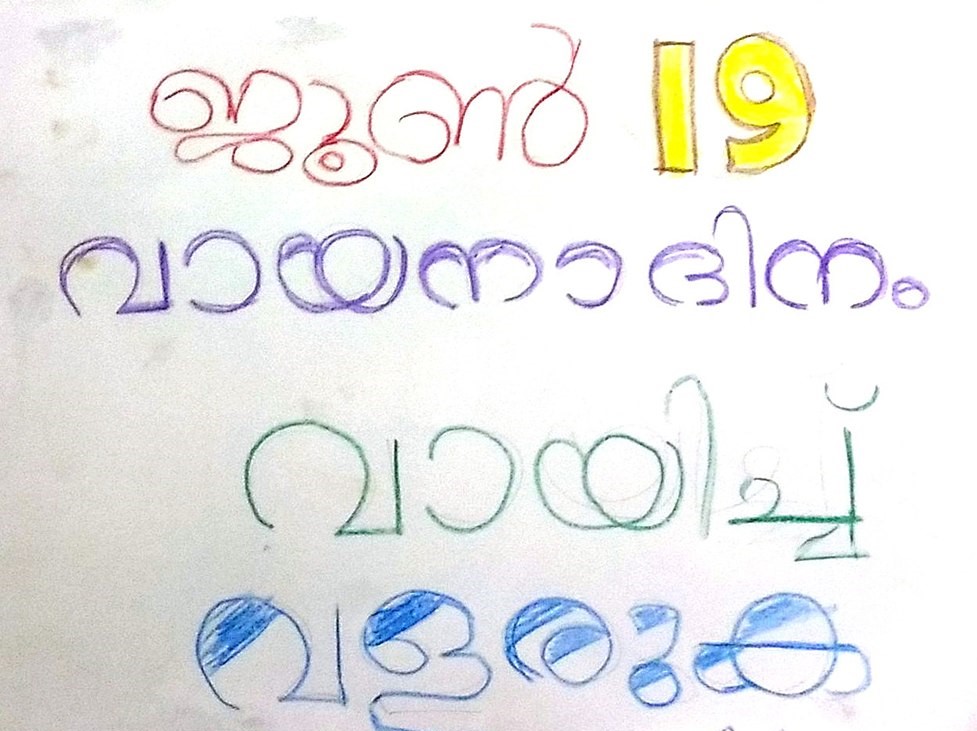 ജൂൺ 19
വായനാദിനം
വായിച്ച്
വളരുക